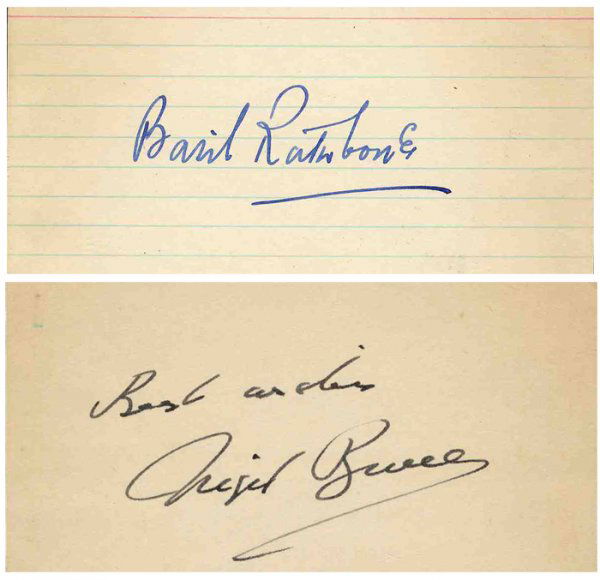 Basil Rathbone
Best wishes
Nigel Bruce